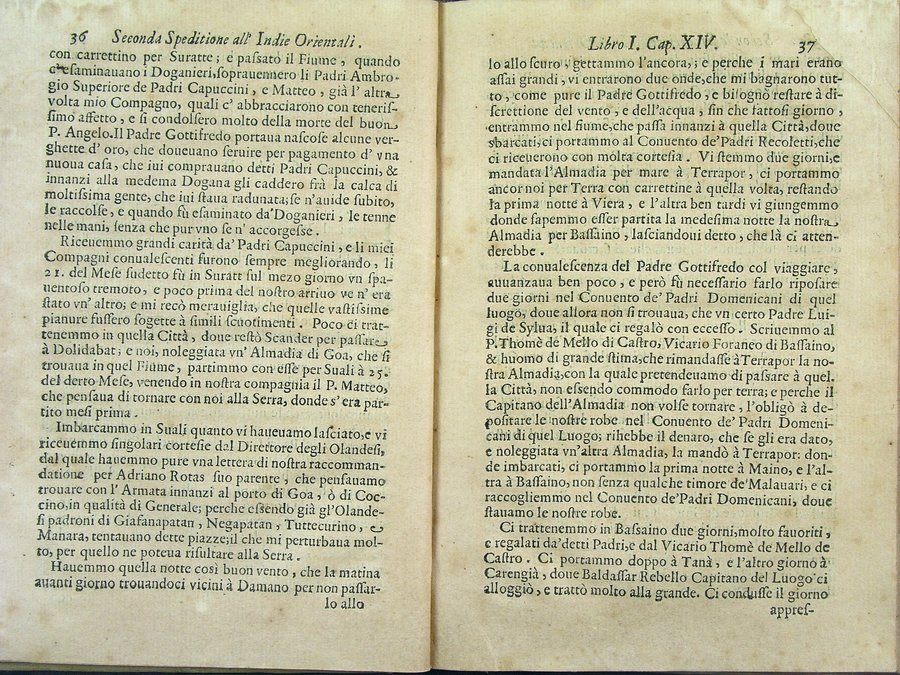 36 Seconda Speditione all' Indie Orientali.
con carrettino per Suratte; e passato il Fiume, quando
c'esaminauano i Doganieri, soprauennero li Padri Ambro-
gio Superiore de Padri Capuccini, e Matteo, già l' altra
volta mio Compagno, quali c' abbracciarono con teneris-
simo affetto, e si condolsero molto della morte del buon
P. Angelo. Il Padre Gottifredo portaua nascose alcune ver-
ghette d' oro, che doueuano seruire per pagamento d' vna
nuoua casa, che iui comprauano detti Padri Capuccini, &
innanzi alla medema Dogana gli caddero frà la calca di
moltissima gente, che iui staua radunata; se n'auide subito,
le raccolse, e quando fù esaminato da'Doganieri, le tenne
nelle mani, senza che pur vno se n' accorgesse.
Riceuemmo grandi carità da' Padri Capuccini, e li miei
Compagni conualescenti furono sempre megliorando, li
21. del Mese sudetto fù in Suratt sul mezo giorno vn spa-
uentoso tremoto, e poco prima del nostro arriuo ve n' era
stato vn' altro; e mi recò merauiglia, che quelle vastissime
pianure fussero sogette à simili scuotimenti. Poco ci trat-
tenemmo in quella Città, doue restò Scander per passare
à Dolidabat; e noi, noleggiata vn' Almadia di Goa, che si
trouaua in quel Fiume, partimmo con esse per Suali à 25.
del detto Mese, venendo in nostra compagnia il P. Matteo,
che pensaua di tornare con noi alla Serra, donde s' era par-
tito mesi prima.
Imbarcammo in Suali quanto vi haueuamo lasciato, e vi
riceuemmo singolari cortesie dal Direttore degli Olandesi,
dal quale hauemmo pure vna lettera di nostra raccomman-
datione per Adriano Rotas suo parente, che pensauamo
trouare con l' Armata innanzi al porto di Goa, ò di Coc-
cino, in qualità di Generale; perche essendo già gl'Olande-
si padroni di Giafanapatan, Negapatan, Tuttecurino, e
Manara, tentauano dette piazze; il che mi perturbaua mol-
to, per quello ne poteua risultare alla Serra.
Hauemmo quella notte così buon vento, che la matina
auanti giorno trouandoci vicini à Damano per non passar-
lo allo
Libro I. Cap. XIV. 37
lo allo scuro, gettammo l'ancora,; e perche i mari erano
assai grandi, vi entrarono due onde, che mi bagnarono tut-
to, come pure il Padre Gottifredo, e bisognò restare à di-
screttione del vento, e dell'acqua, sin che fattosi giorno,
entrammo nel fiume, che passa innanzi à quella Città, doue
sbarcati, ci portammo al Conuento de'Padri Recoletti, che
ci riceuerono con molta cortesia. Vi stemmo due giorni, e
mandata l'Almadia per mare à Terrapor, ci portammo
ancor noi per Terra con carrettine à quella volta, restando
la prima notte à Viera, e l'altra ben tardi vi giungemmo
donde sapemmo esser partita la medesima notte la nostra
Almadia per Bassaino, lasciandoui detto, che là ci atten-
derebbe.
La conualescenza del Padre Gottifredo col viaggiare,
auuanzaua ben poco, e però fù necessario farlo riposare
due giorni nel Conuento de' Padri Domenicani di quel
luogo, doue allora non si trouaua, che vn certo Padre Lui-
gi de Sylua, il quale ci regalò con eccesso. Scriuemmo al
P. Thomè de Mello di Castro, Vicario Foraneo di Bassaino,
& huomo di grande stima, che rimandasse à Terrapor la no-
stra Almadia, con la quale pretendeuamo di passare à quel-
la Città, non essendo commodo farlo per terra; e perche il
Capitano dell'Almadia non volse tornare, l'obligò à de-
positare le nostre robe nel Conuento de' Padri Domeni-
cani di quel Luogo; rihebbe il denaro, che se gli era dato,
e noleggiata vn'altra Almadia, la mandò à Terrapor: don-
de imbarcati, ci portammo la prima notte à Maino, e l'al-
tra à Bassaino, non senza qualche timore de' Malauari, e ci
raccogliemmo nel Conuento de'Padri Domenicani, doue
stauamo le nostre robe.
Ci trattenemmo in Bassaino due giorni, molto fauoriti,
e regalati da'detti Padri, e dal Vicario Thomè de Mello de
Castro. Ci portammo doppo à Tanà, e l'altro giorno à
Carengià, doue Baldassar Rebello Capitano del Luogo ci
alloggiò, e trattò molto alla grande. Ci condusse il giorno
appres-